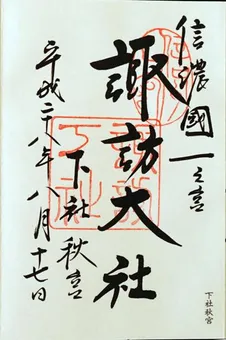 信濃國一之宮
諏訪大社
下社秋宮
平成二十八年八月十七日
下社秋宮